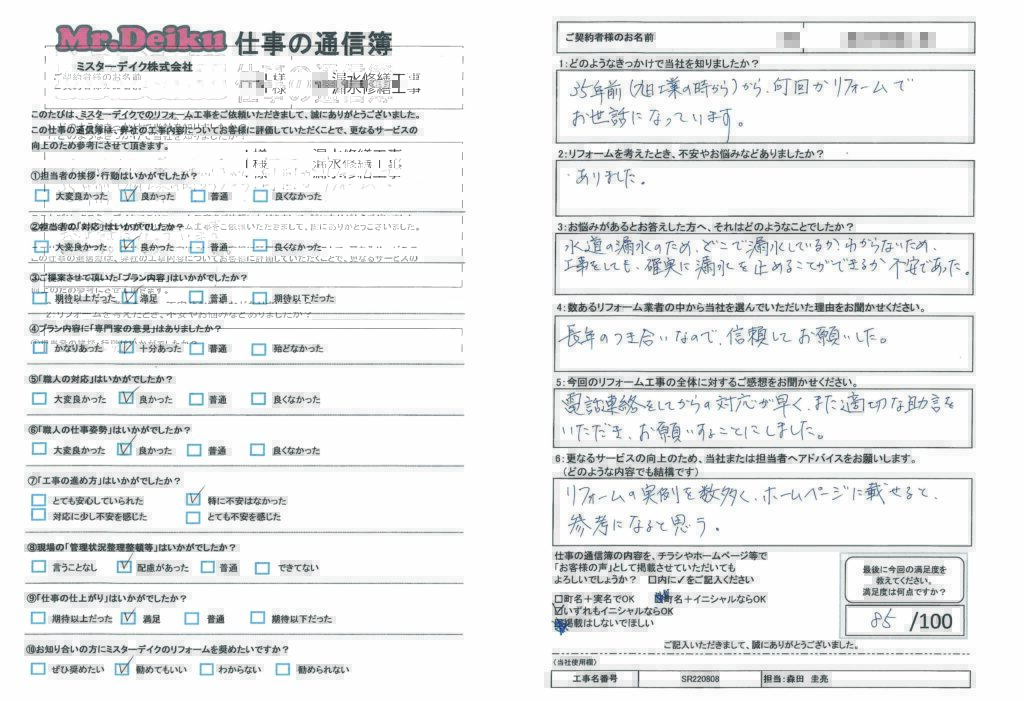 Mr.Deiku 仕事の通信簿
ミスターデイク株式会社
ご契約者様のお名前 様 漏水修繕工事
このたびは、ミスターデイクでのリフォーム工事をご依頼いただきまして、誠にありがとうございました。
この仕事の通信簿は、弊社の工事内容についてお客様に評価していただくことで、更なるサービスの
向上のため参考にさせて頂きます。
様 漏水修繕工事
①担当者の挨拶・行動はいかがでしたか?
□ 大変良かった ☑ 良かった □ 普通 □ 良くなかった
②担当者の「対応」はいかがでしたか?
□ 大変良かった ☑ 良かった □ 普通 □ 良くなかった
③ご提案させて頂いた「プラン内容」はいかがでしたか?
□ 期待以上だった ☑ 満足 □ 普通 □ 期待以下だった
④プラン内容に「専門家の意見」はありましたか?
□ かなりあった ☑ 十分あった □ 普通 □ 殆どなかった
⑤「職人の対応」はいかがでしたか?
□ 大変良かった ☑ 良かった □ 普通 □ 良くなかった
⑥「職人の仕事姿勢」はいかがでしたか?
□ 大変良かった ☑ 良かった □ 普通 □ 良くなかった
⑦「工事の進め方」はいかがでしたか?
□ とても安心していられた ☑ 特に不安はなかった
□ 対応に少し不安を感じた □ とても不安を感じた
⑧現場の「管理状況整理整頓等」はいかがでしたか?
□ 言うことなし ☑ 配慮があった □ 普通 □ できてない
⑨「仕事の仕上がり」はいかがでしたか?
□ 期待以上だった ☑ 満足 □ 普通 □ 期待以下だった
⑩お知り合いの方にミスターデイクのリフォームを奨めたいですか?
□ ぜひ奨めたい ☑ 勧めてもいい □ わからない □ 勧められない
ご契約者様のお名前
1:どのようなきっかけで当社を知りましたか?
35年前(祖業の時から)から、何回かリフォームで
お世話になっています。
2:リフォームを考えたとき、不安やお悩みなどありましたか?
ありました。
3:お悩みがあるとお答えした方へ、それはどのようなことでしたか?
水道の漏水のため、どこで漏水しているか、わからないため、
工事をしても、確実に漏水を止めることができるか不安であった。
4:数あるリフォーム業者の中から当社を選んでいただいた理由をお聞かせください。
長年のつき合いなので、信頼してお願いした。
5:今回のリフォーム工事の全体に対するご感想をお聞かせください。
電話連絡をしてからの対応が早く、また適切な助言を
いただき、お願いすることにしました。
6:更なるサービスの向上のため、当社または担当者へアドバイスをお願いします。
(どのような内容でも結構です)
リフォームの実例を数多く、ホームページに載せると、
参考になると思う。
仕事の通信簿の内容を、チラシやホームページ等で
「お客様の声」として掲載させていただいても
よろしいでしょうか? □内に✓をご記入ください
□町名+実名でOK 町名+イニシャルならOK
☑いずれもイニシャルならOK
掲載はしないでほしい
最後に今回の満足度を
教えてください。
満足度は何点ですか?
85 /100
ご記入いただきまして、誠にありがとうございました。
(当社使用欄)
工事名番号 SR220808 担当:森田 圭亮